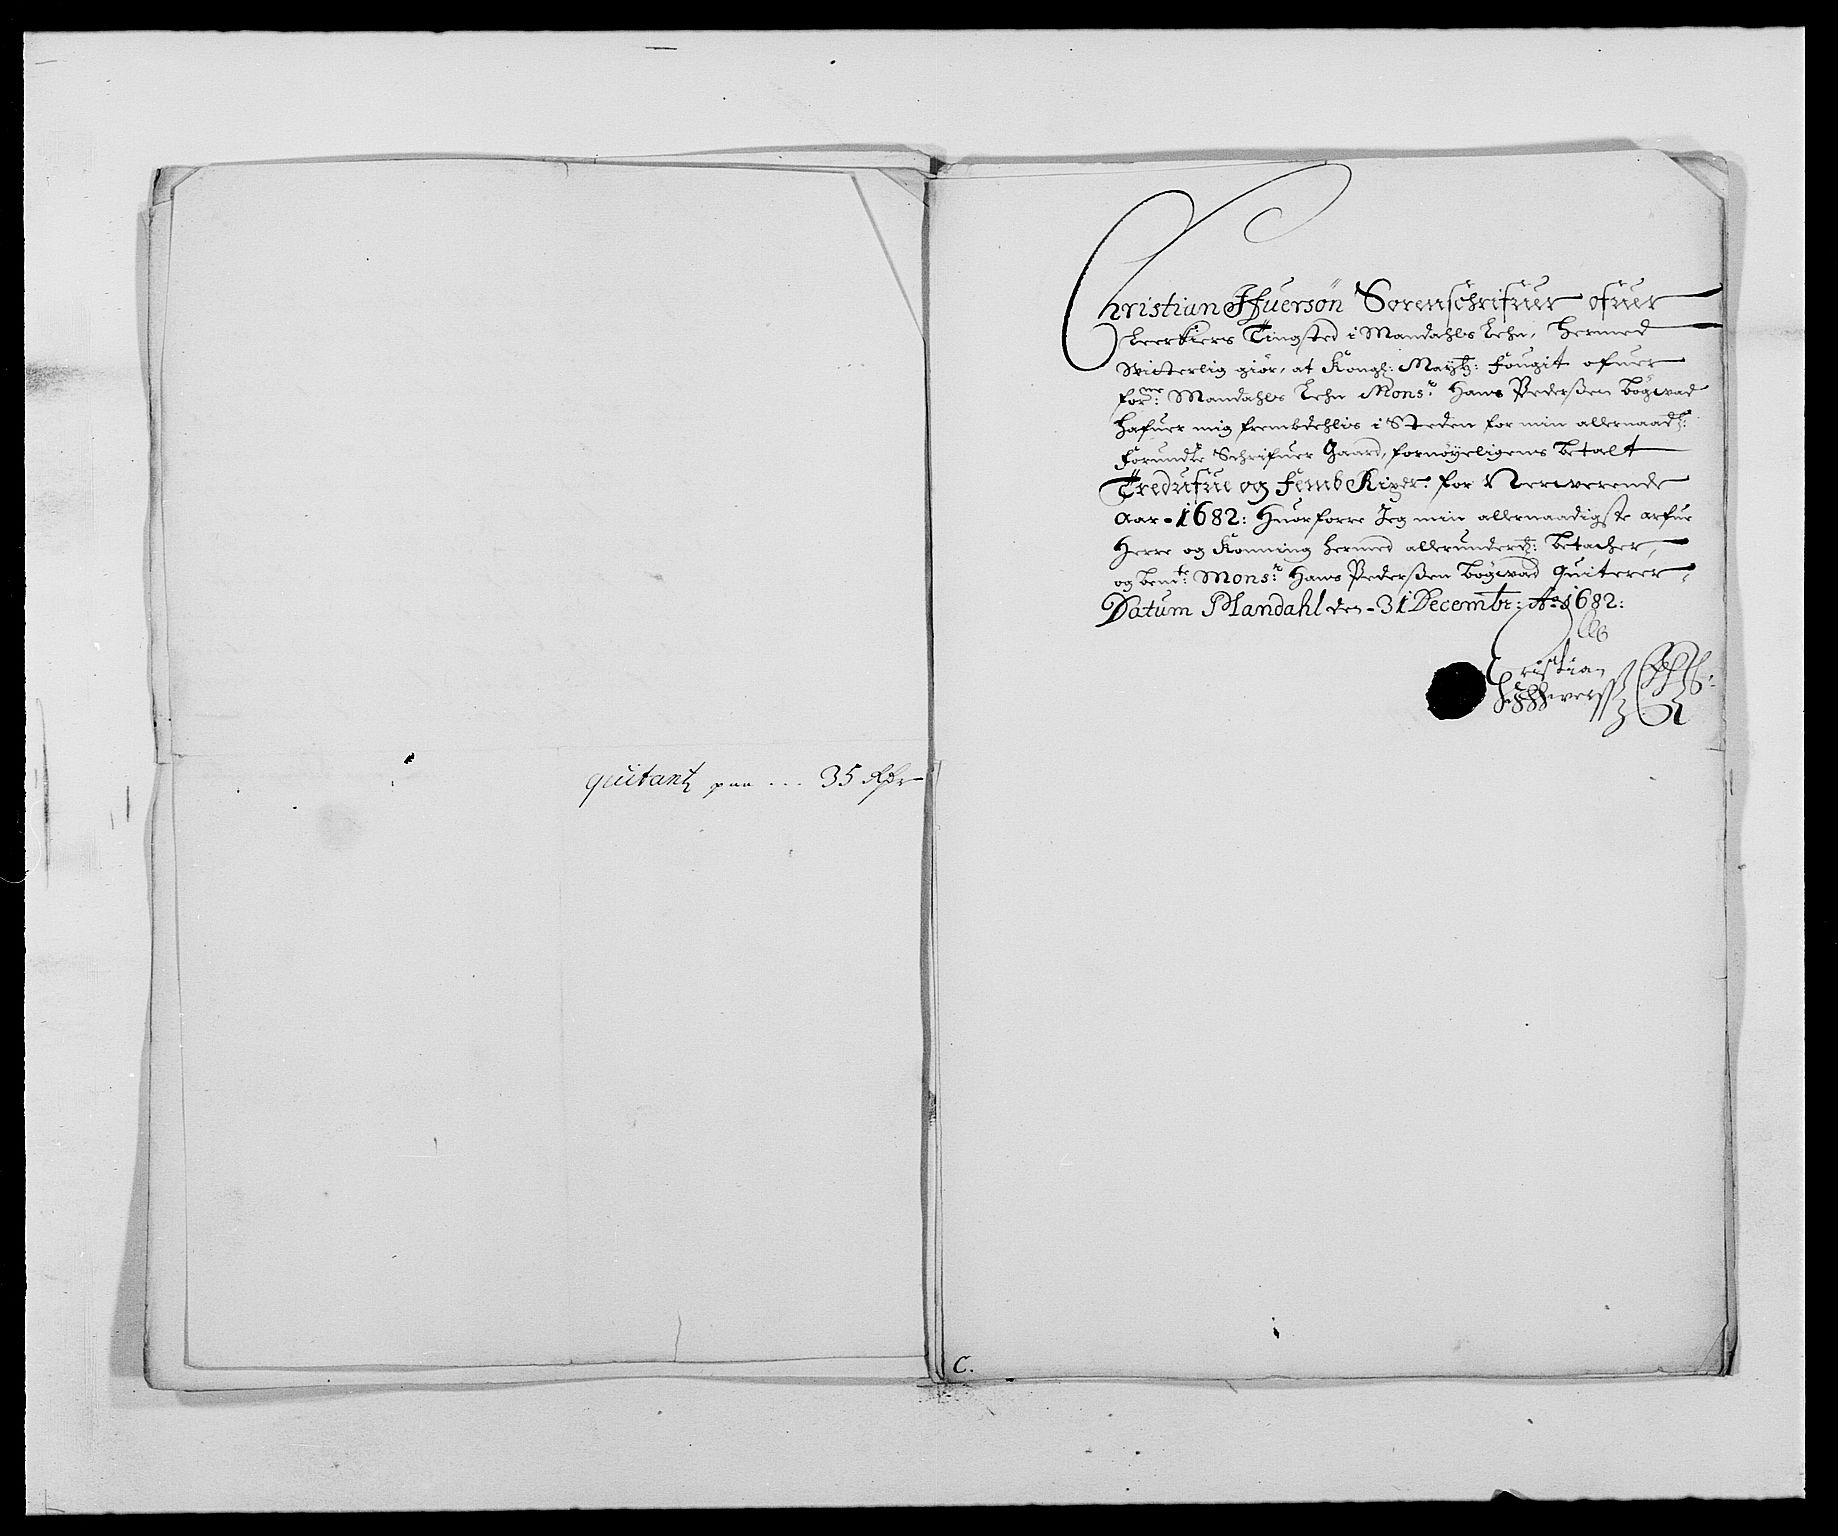 quitantz paa ... 35 Rdr
Christian Ifuersøn Sorenschrifuer ofuer
Leerkiers Tingsted i Mandahls Lehn, hermed
Witterlig giør, at Kongl: Maytz: Fougit ofuer
forne: Mandahls Lehn Monsr: Hans Pederßen Bøgwad
hafuer mig frembdehlis i Steden for min allernaadl:
forundte Schrifuer Gaard, fornøyeligens betalt
Tredufue og Femb Rixdr: for Nerwerende
Aar - 1682: Huorforre Jeg min allernaadigste arfue
Herre og Konning hermed allerunderdl: betacher,
og bemte: Monsr: Hans Pederßen Bøgwad quiterer,
Datum Mandahl den - 31 Decembr: Ao 1682:
Christian
C.